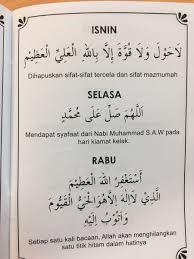 ISNIN
لَاحَوْلَ وَلَا قُوَّةَ إِلَّا بِاللهِ الْعَلِيِّ الْعَظِيْمِ
Dihapuskan sifat-sifat tercela dan sifat mazmumah
SELASA
اَللّٰهُمَّ صَلِّ عَلَى مُحَمَّدٍ
Mendapat syafaat dari Nabi Muhammad S.A.W pada
hari kiamat kelek.
RABU
أَسْتَغْفِرُ اللهَ الْعَظِيْمَ
الَّذِيْ لَاإِلٰهَ إِلَّاهُوَالْحَيُّ الْقَيُّوْمُ
وَأَتُوْبُ إِلَيْهِ
Setiap satu kali bacaan, Allah akan menghilangkan
satu titik hitam dalam hatinya